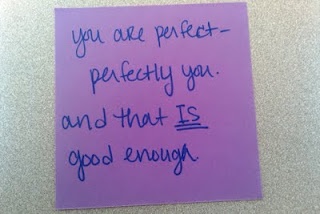 you are perfect-
perfectly you.
and that IS
good enough.